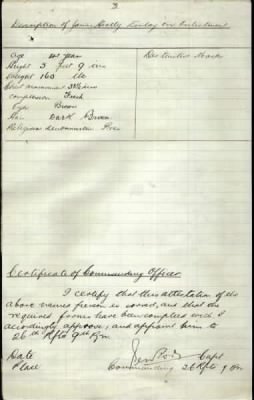 3
Description of James Scotty Tinlay on Enlistment
Age year
Distinctive Marks
Height 5 feet 9 ins
Weight 160 lbs
Chest measurement 38½ ins
Complexion Fresh
Eyes Brown
Hair Dark Brown
Religious denomination Pres
Certificate of Commanding Officer
I certify that this attestation of the
above named person is correct, and that the
required forms have been complied with. I
accordingly approve, and appoint him to
26th Rfts 9th Bn
Date
Capt
Place
Commanding 26 Rfts 9 Bn